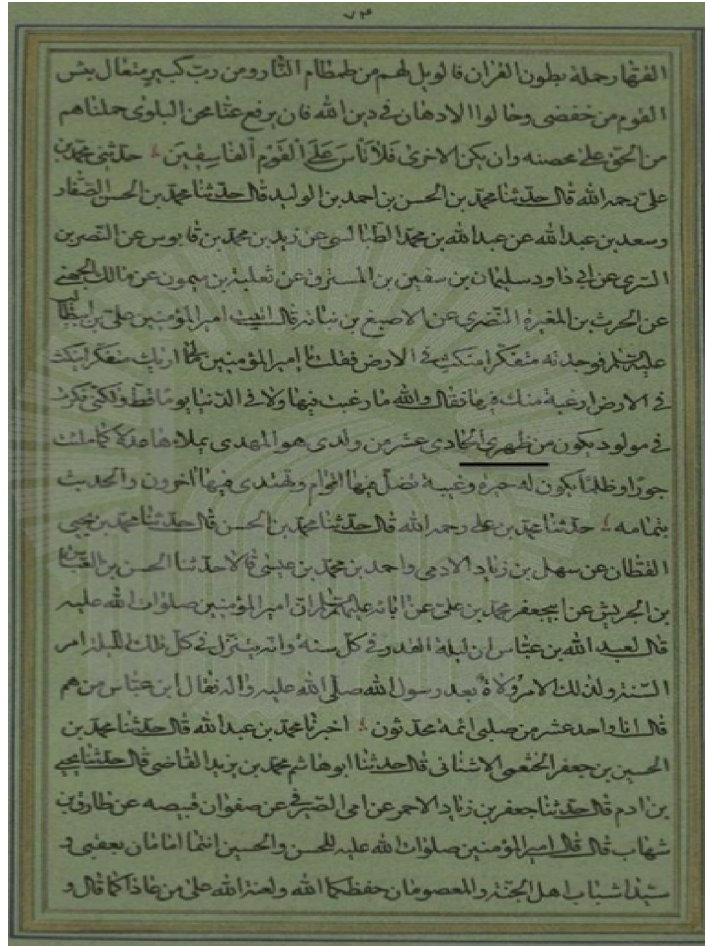 ٧٣
الفقهار حملة بطون القران فالويل لهم من طمطام النار ومن رب كبير متعال بئس
القوم من خفضى وحالوا الادهان فى دين الله فان يرفع عنا محن البلوى حملناهم
من الحق على محصنه وان يكن الاخرى فلا تاس على القوم الفاسقين حدثنى محمد بن
على رحمه الله قال حدثنا محمد بن الحسن بن احمد بن الوليد قال حدثنا محمد بن الحسن الصفار
وسعد بن عبدالله عن عبدالله بن محمد الطيالسى عن زيد بن محمد بن قابوس عن النصر بن
السرى عن ابى داود سليمان بن سفين بن المسترق عن ثعلبة بن ميمون عن مالك الجهنى
عن الحرث بن المغيرة النصرى عن الاصبغ بن نباته قال اتيت امير المؤمنين على بن ابيطالب
عليه السلم فوجدته متفكرا ينكت فى الارض فقلت يا امير المؤمنين مالى اريك متفكرا ينكت
فى الارض ارغبة منك فيها فقال والله ما رغبت فيها ولا فى الدنيا يوما قط ولكنى فكرت
فى مولود يكون من ظهرى الحادى عشر من ولدى هو المهدى يملاءها عدلا كما ملئت
جورا وظلما يكون له حيرة وغيبة تضل فيها اقوام وتهتدى فيها اخرون والحديث
بتمامه حدثنا محمد بن على رحمه الله قال حدثنا محمد بن الحسن قال حدثنا محمد بن يحيى
القطان عن سهل بن زياد الادمى واحمد بن محمد بن عيسى قالا حدثنا الحسن بن العباس
بن الجريش عن ابيجعفر محمد بن على عن ابائه عليهم السلم ان امير المؤمنين صلوات الله عليه
قال لعبد الله بن عباس ان ليلة القدر فى كل سنه وانه يتنزل فى كل تلك الليلة امر
السنة ولذلك الامر ولاة بعد رسول الله صلى الله عليه واله فقال ابن عباس من هم
قال انا واحد عشر من صلبى ائمة محدثون اخبرنا محمد بن عبدالله قال حدثنا محمد بن
الحسين بن جعفر الخثعمى الاشنانى قال حدثنا ابوهاشم محمد بن يزيد القاضى قال حدثنا يحيى
بن ادم قال حدثنا جعفر بن زياد الاحمر عن ابى الصيرفى عن صفوان قبيصه عن طارق بن
شهاب قال قال امير المؤمنين صلوات الله عليه للحسن والحسين انتما امامان بعقبى و
سيدا شباب اهل الجنة والمعصومان حفظكما الله ولعنة الله على من عاداكما قال و